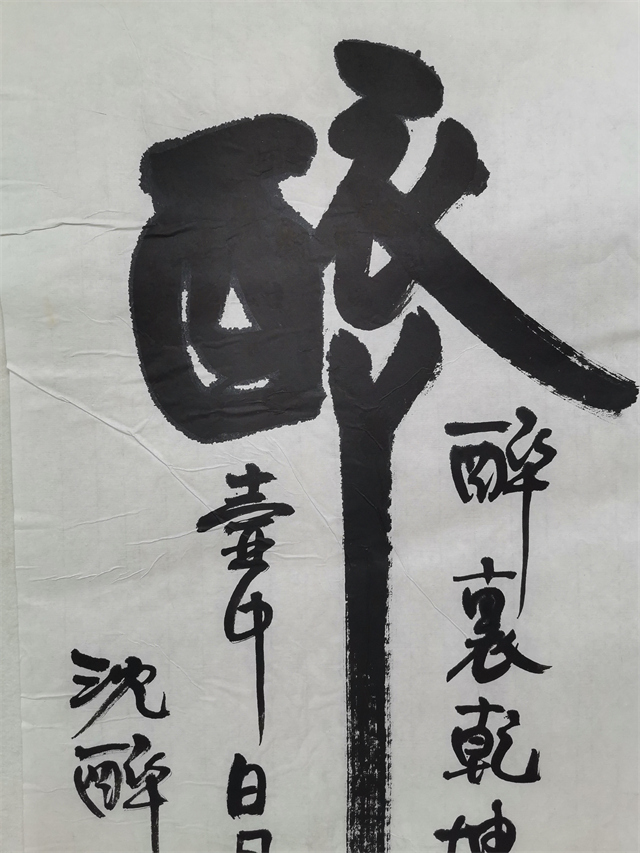 醉
醉裏乾坤
壺中日月
沈醉